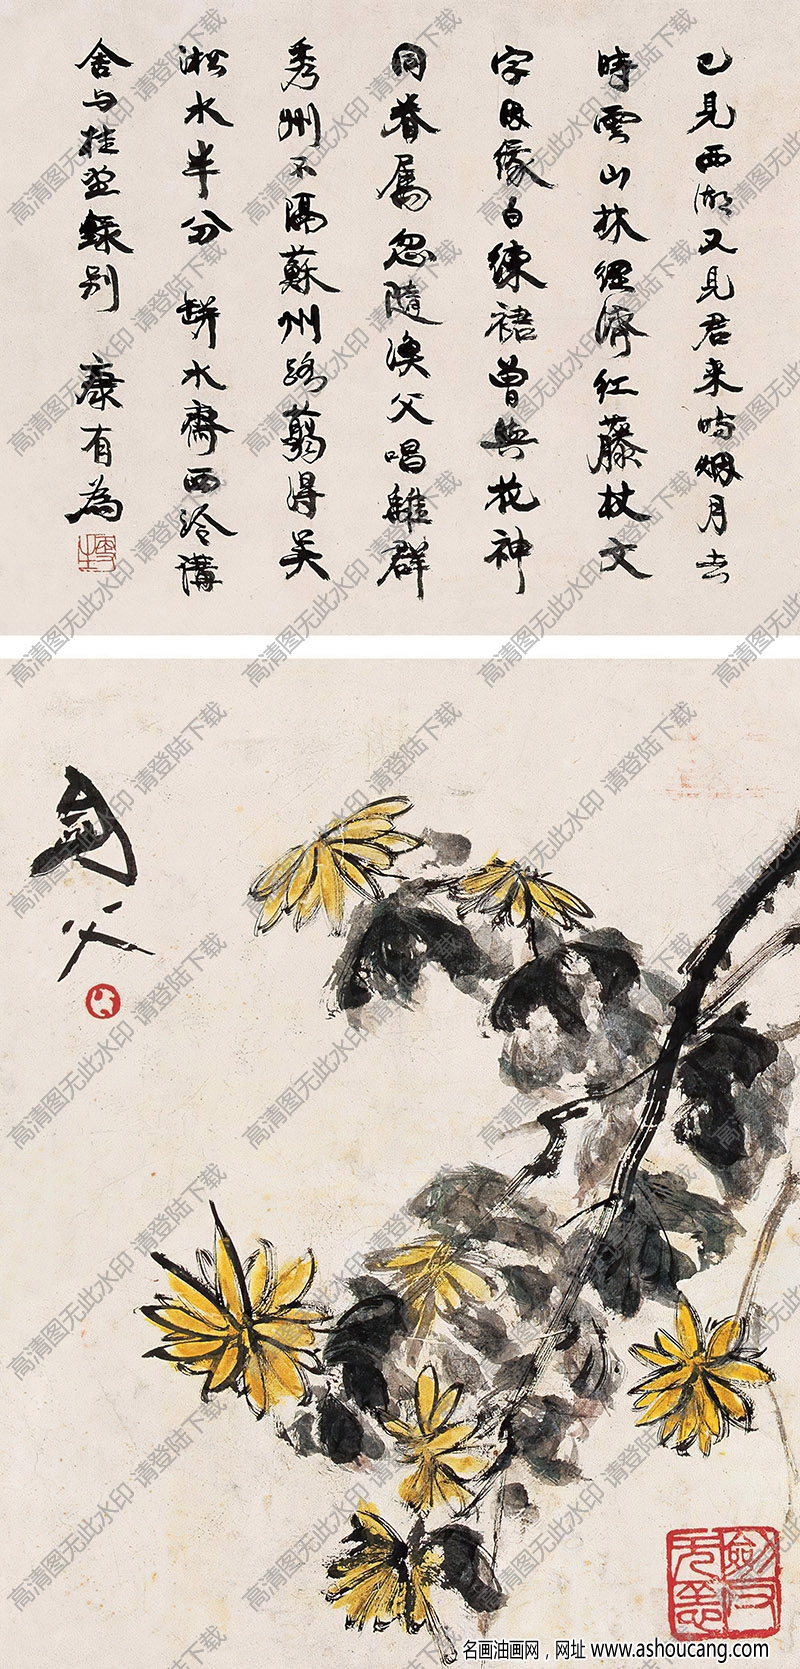 已見西湖又見君来時烟月去
時雲山林經濟紅藤杖文
字因緣白練裙曾與花神
同眷属忽隨漁父唱離群
秀州不隔蘇州路翦得吴
淞水半分 缾水齋西泠講
舍与桂笙錄别 康有為
劍父
高清图无此水印 请登陆下载
名画油画网，网址 www.ashoucang.com